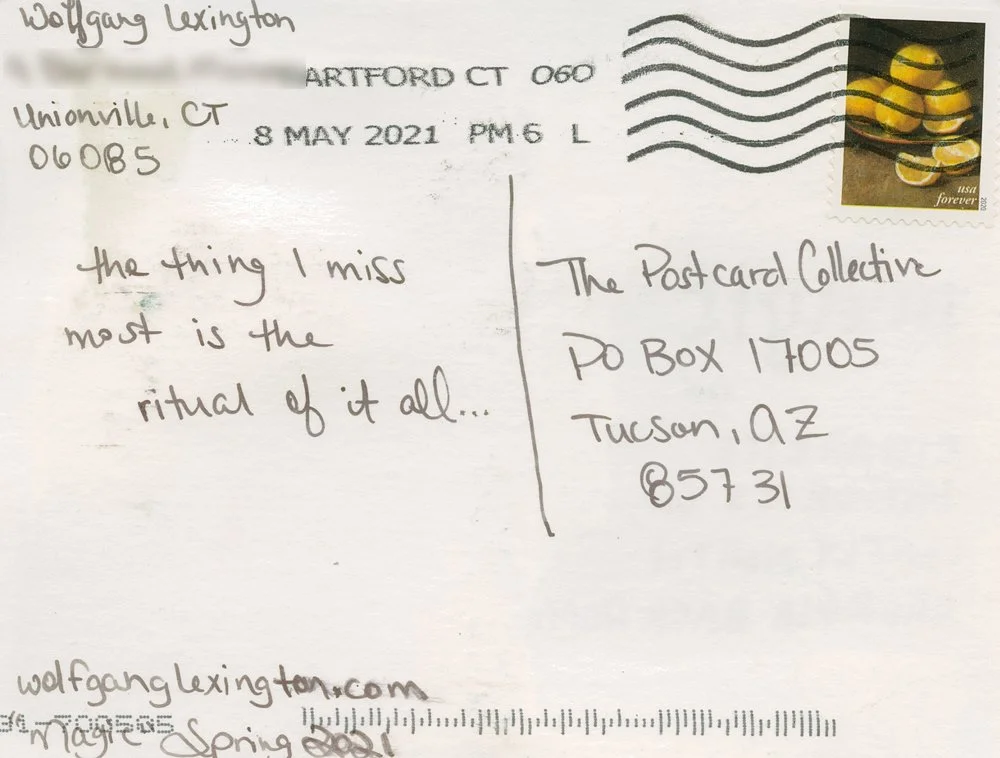 Wolfgang Lexington
ARTFORD CT 060
Unionville, CT
06085
8 MAY 2021 PM 6 L
usa
forever
2020
the thing I miss
most is the
ritual of it all...
The Postcard Collective
PO BOX 17005
Tucson, AZ
85731
wolfganglexington.com
Magic Spring 2021